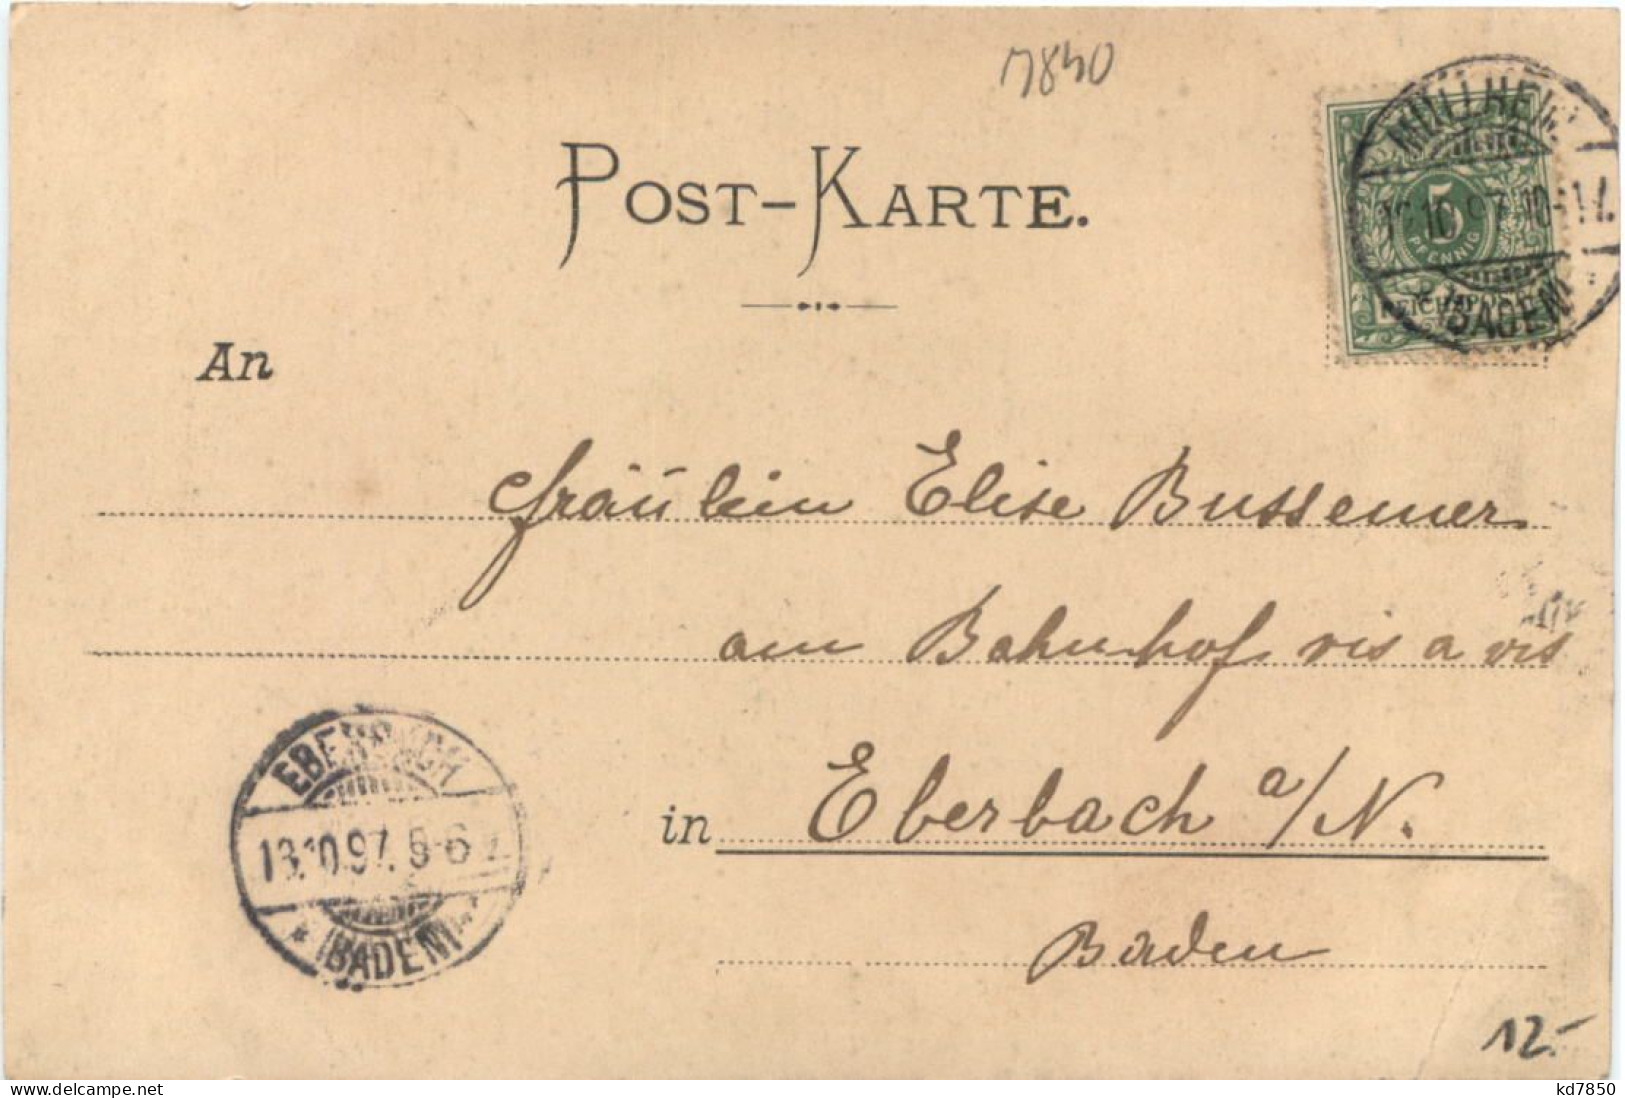 7840
POST-KARTE.
MÜLLHEIM
10.97.10-11
(BADEN)
5
PFENNIG
REICHSPOST
An
Fräulein Elise Bussemer
am Bahnhof vis a vis
in Eberbach a/N.
Baden
EBERBACH
13.10.97. 5-6
* (BADEN)
12.-
www.delcampe.net
kd7850